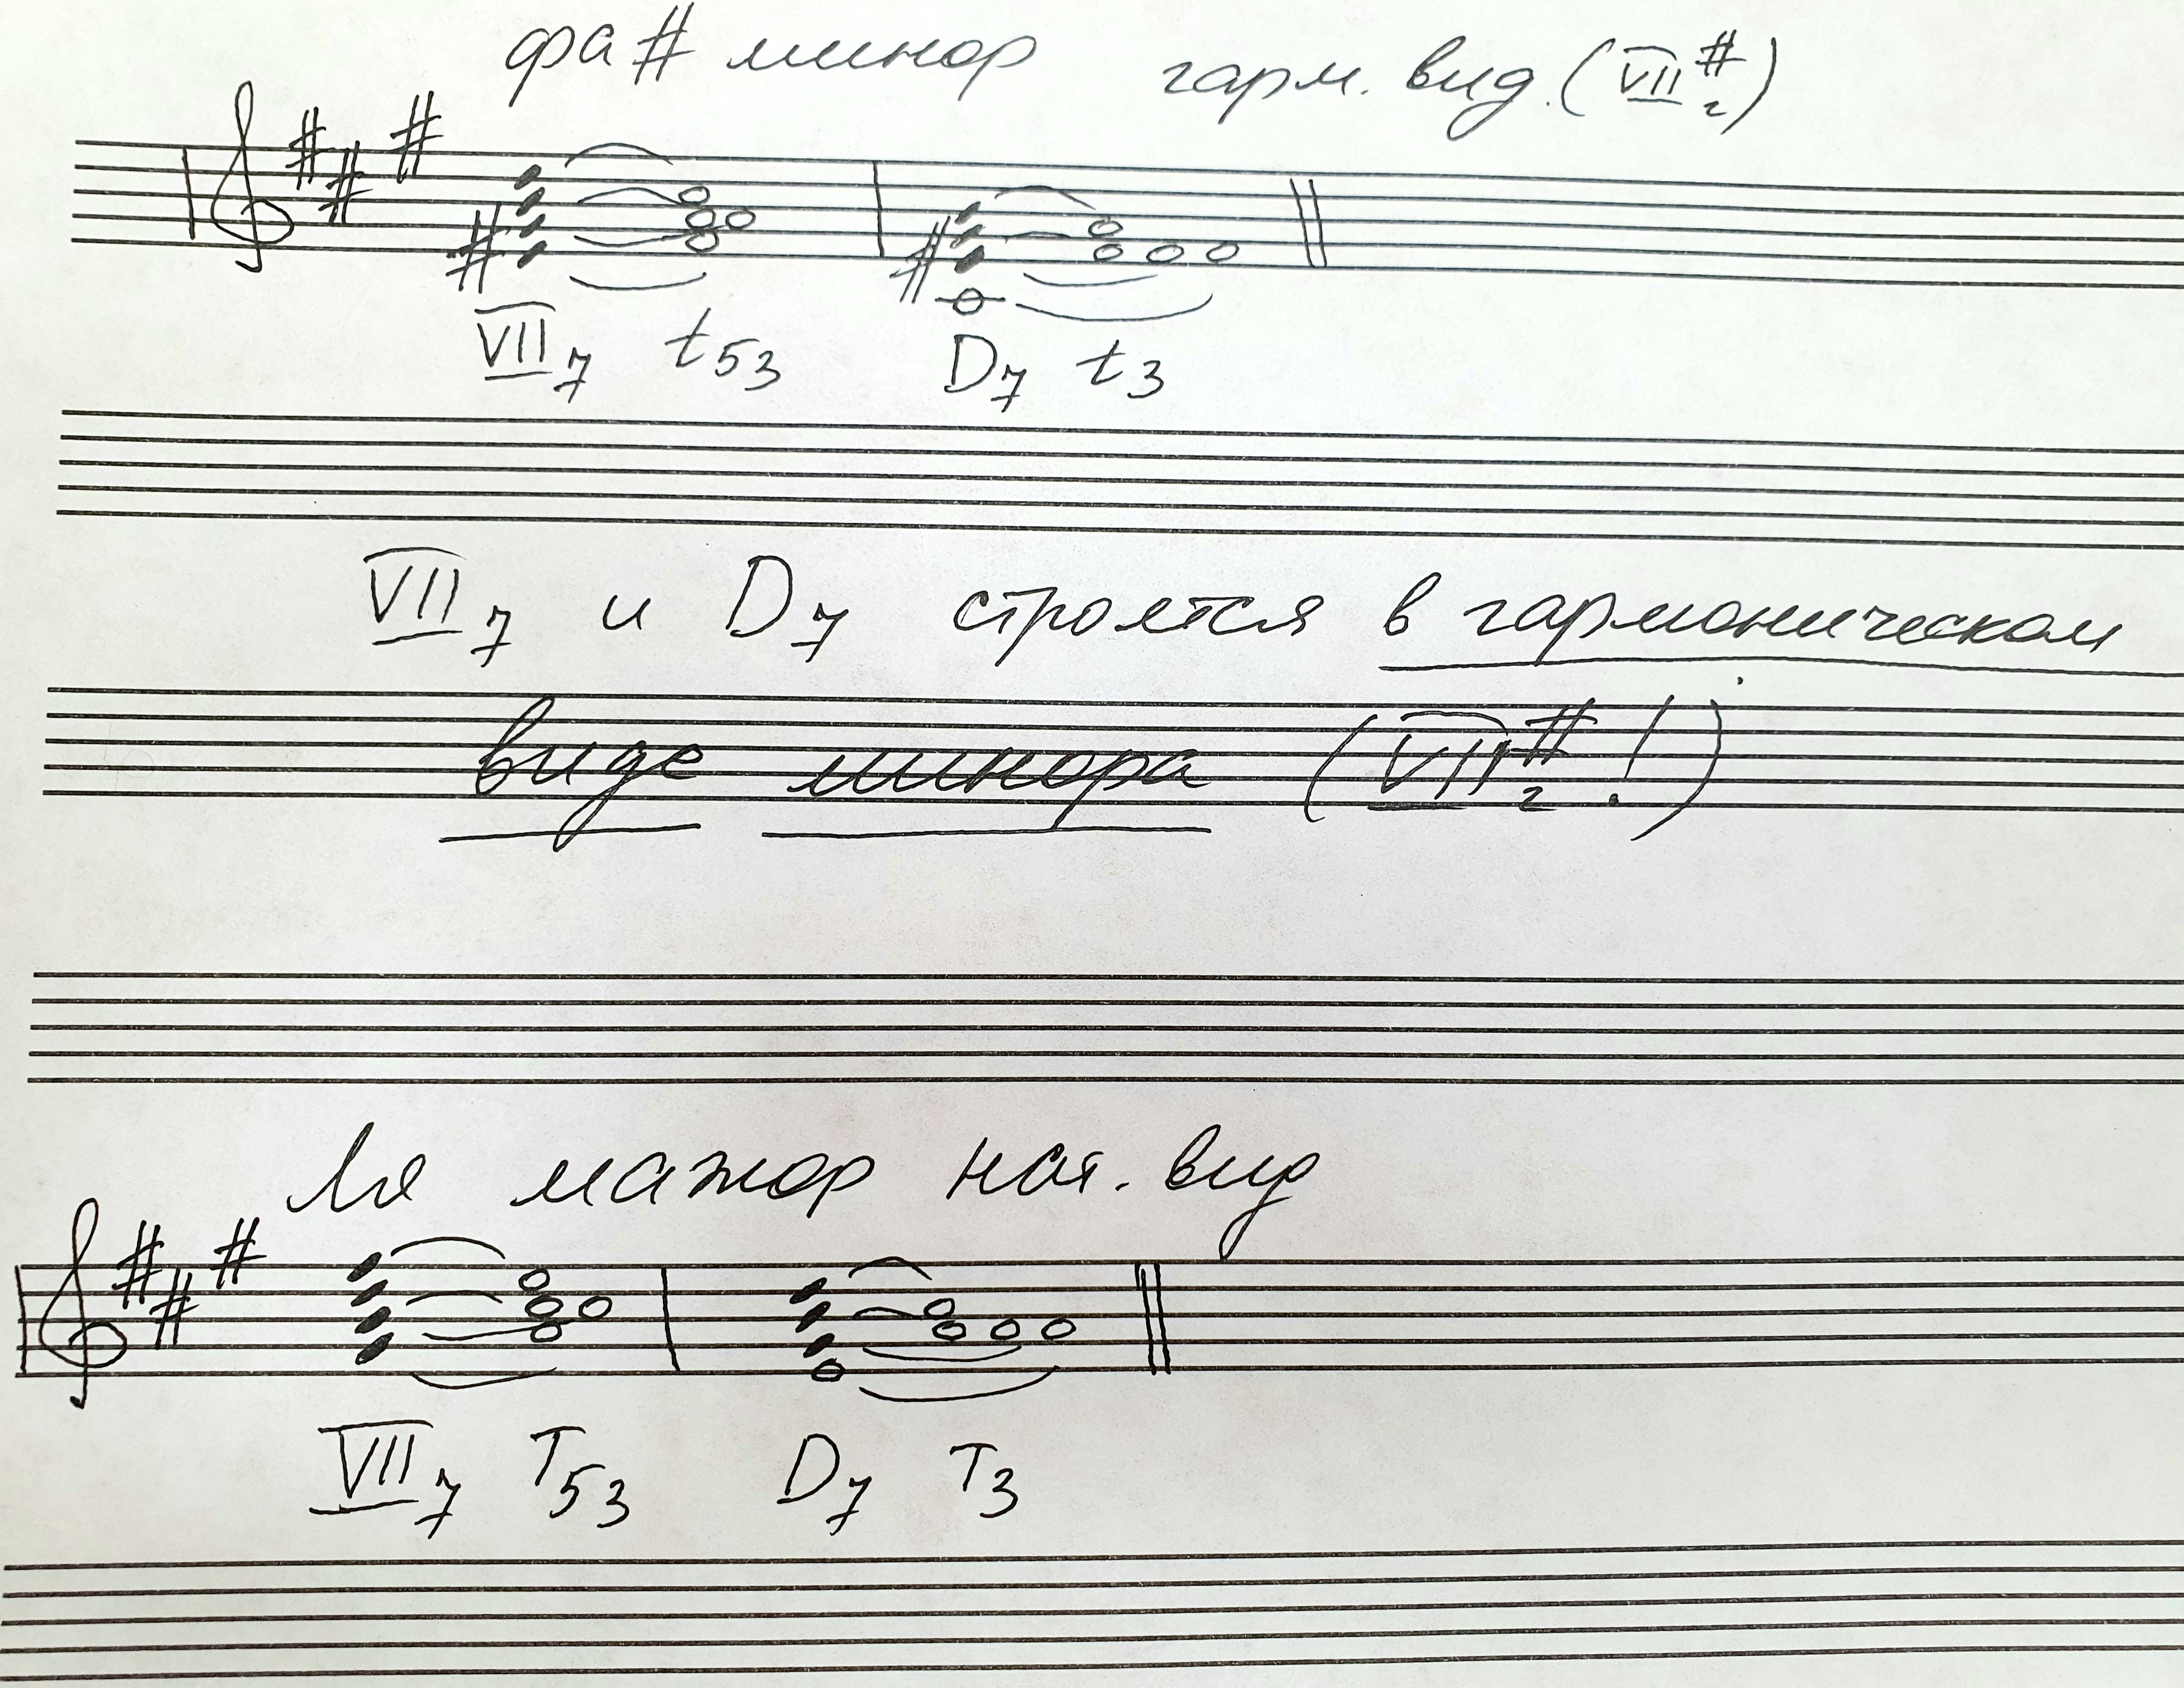 фа# минор гарм. вид. (VII#г)
VII7 t53 D7 t3
VII7 и D7 строятся в гармоническом
виде минора (VII#г!)
Ля мажор нат. вид
VII7 T53 D7 T3